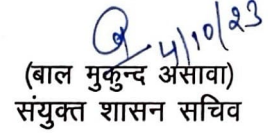 4/10/23
(बाल मुकुन्द असावा)
संयुक्त शासन सचिव